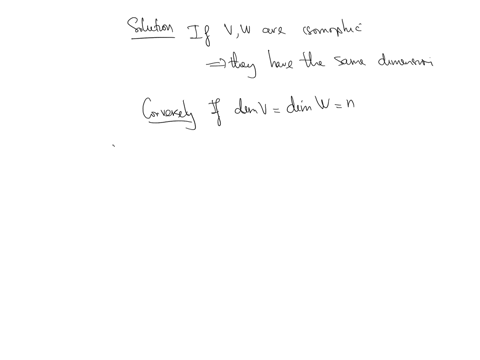 Solution If V, W are isomorphic
⇒ they have the same dimension
Conversely If dim V = dim W = n